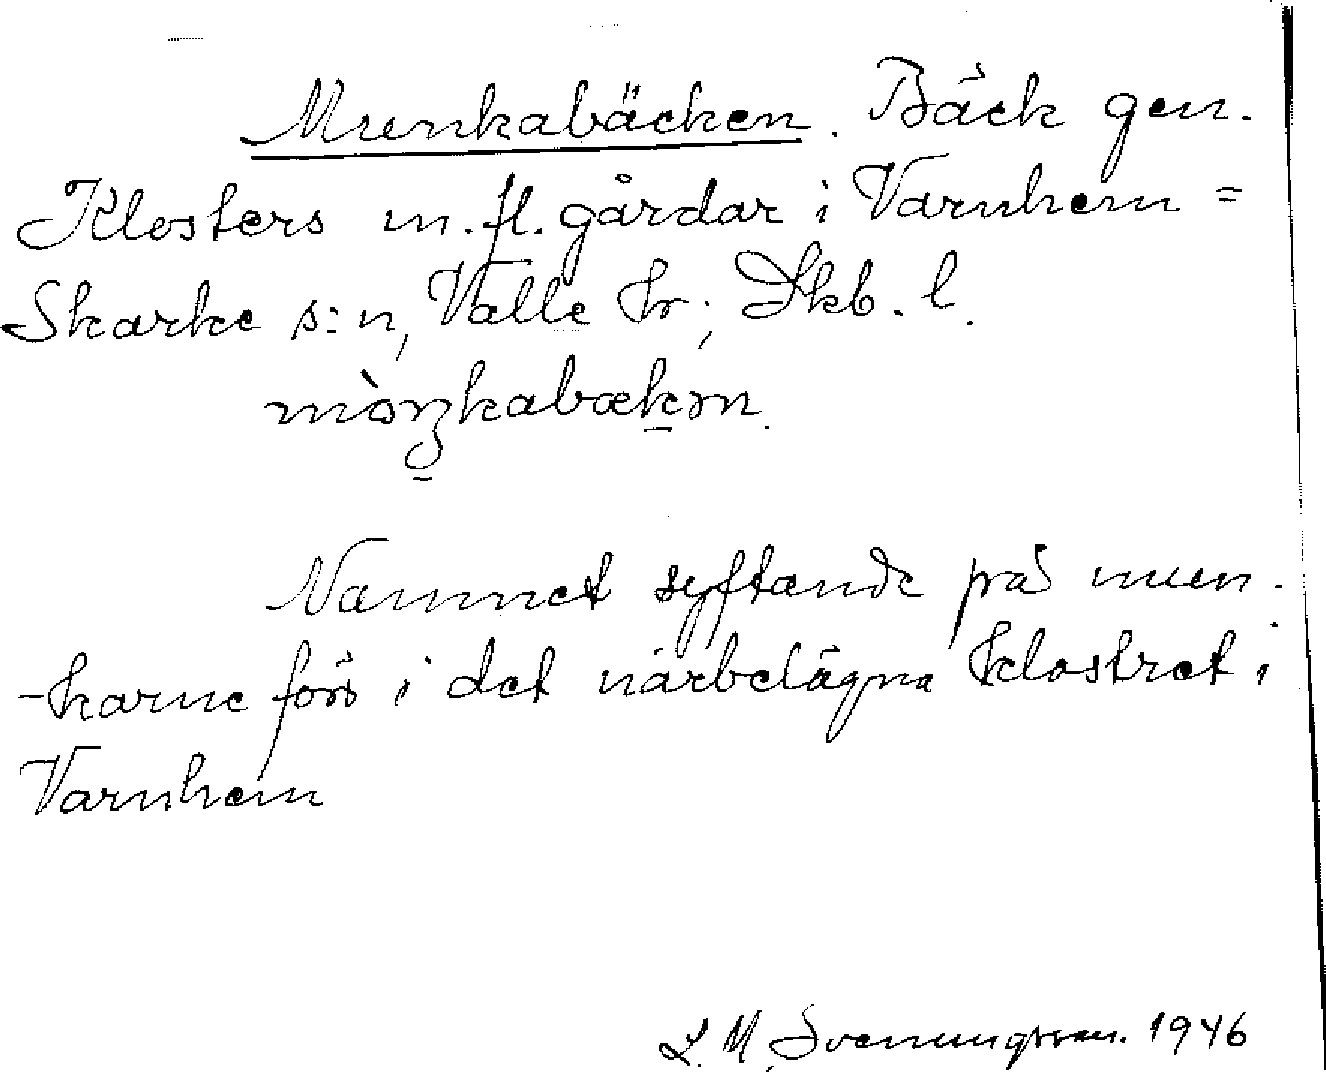 Munkabäcken. Bäck gen.
Klosters m. fl. gårdar i Varnhem =
Skarke s:n, Valle hr; Skb. l.
Namnet syftande på mun-
-karne förr i det närbelägna klostret i
Varnhem
L. M. Svenungsson. 1946